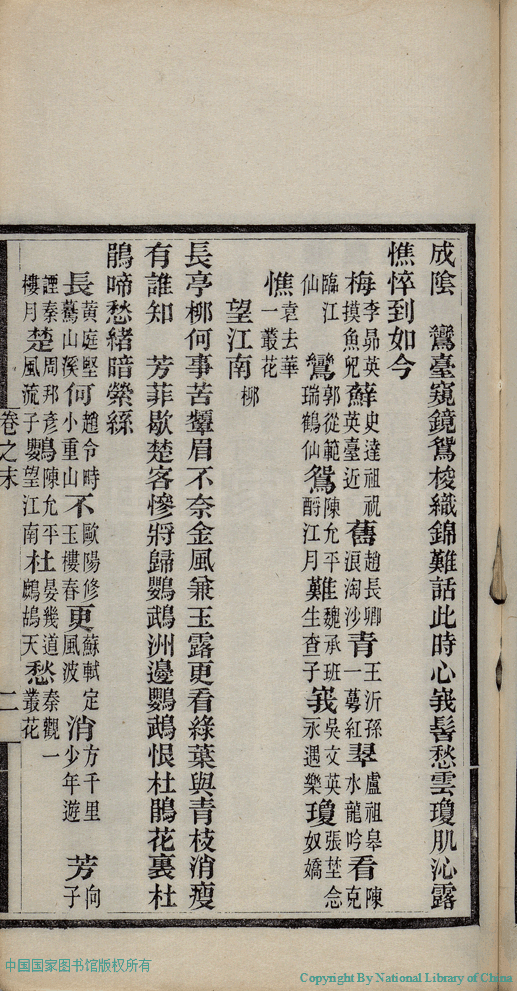 成陰　鸞臺窺鏡鴛梭織錦難話此時心峩髻愁雲瓊肌沁露
憔悴到如今
梅李昴英摸魚兒蘇史達祖祝英臺近舊趙長卿浪淘沙青王沂孫一萼紅翠盧祖皋水龍吟看陳克
臨江仙鸞郭從範瑞鶴仙鴛陳允平酹江月難魏承班生查子峩吳文英永遇樂瓊張埜念奴嬌
憔袁去華一叢花
望江南柳
長亭柳何事苦顰眉不奈金風兼玉露更看綠葉與青枝消瘦
有誰知　芳菲歇楚客慘將歸鸚鵡洲邊鸚鵡恨杜鵑花裏杜
鵑啼愁緒暗縈絲
長黃庭堅驀山溪何趙令畤小重山不歐陽修玉樓春更蘇軾定風波消方千里少年遊　芳向子
諲秦樓月楚周邦彥風流子鸚陳允平望江南杜晏幾道鷓鴣天愁秦觀一叢花
卷之末
二
中国国家图书馆版权所有
Copyright By National Library of China